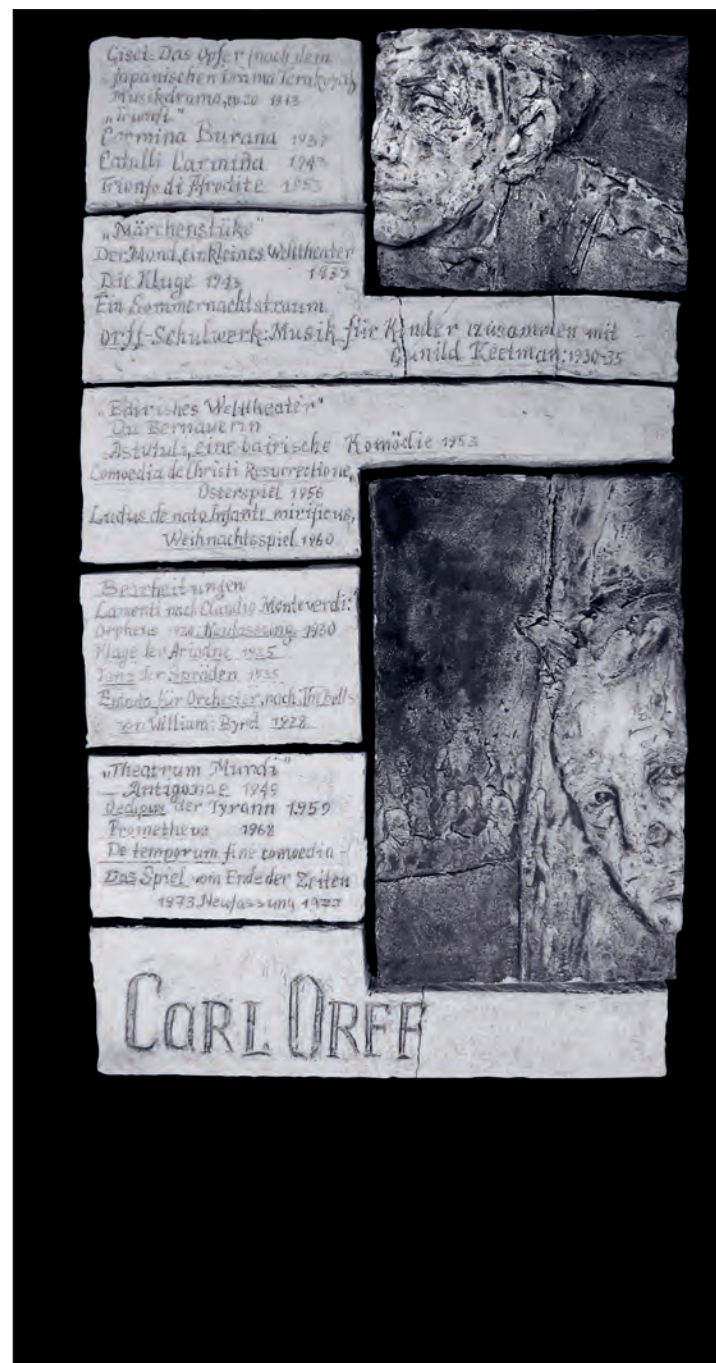 Gisei: Das Opfer (nach dem
japanischen Drama Terakoya)
Musikdrama, 1913
„Trionfi“
Carmina Burana 1937
Catulli Carmina 1943
Trionfo di Afrodite 1953
„Märchenstüke“
Der Mond, ein kleines Welttheater
1939
Die Kluge 1943
Ein Sommernachtstraum
Orff-Schulwerk: Musik für Kinder zusammen mit
Gunild Keetman: 1930-35
„Bairishes Welttheater“
Die Bernauerin
Astutuli, eine bairische Komödie 1953
Comoedia de Christi Resurrectione,
Osterspiel 1956
Ludus de nato Infante mirificus,
Weihnachtsspiel 1960
Bearbeitungen
Lamenti nach Claudio Monteverdi:
Orpheus Neufassung 1930
Klage der Ariadne 1925
Tanz der Spröden 1925
Entrata für Orchester, nach The bells
von William Byrd 1928
„Theatrum Mundi“
Antigonae 1949
Oedipus der Tyrann 1959
Prometheus 1968
De temporum fine comoedia -
Das Spiel vom Ende der Zeiten
1973, Neufassung 1977
CARL ORFF